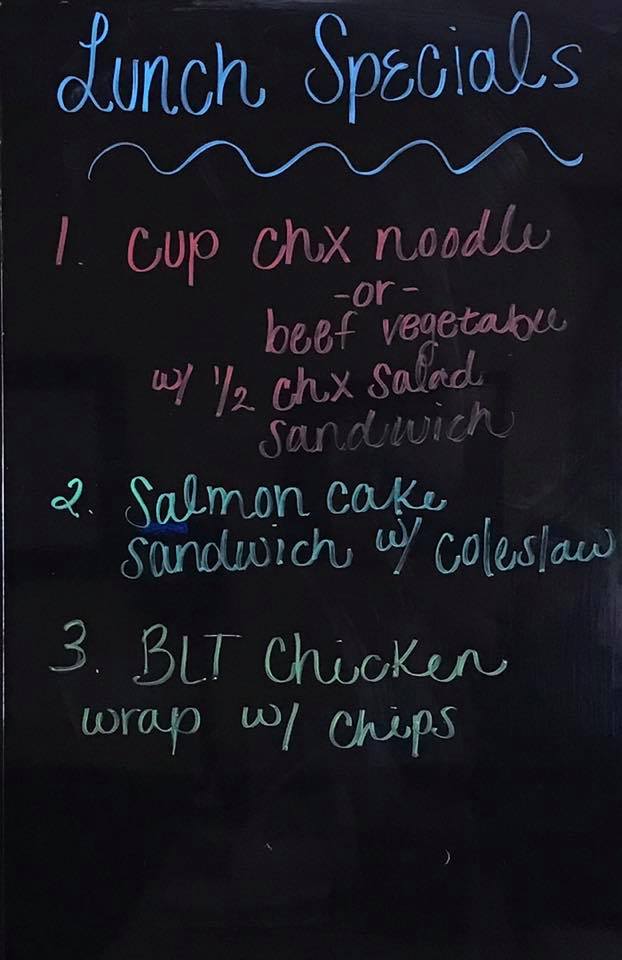 Lunch Specials
1. cup chx noodle
-or-
beef vegetable
w/ 1/2 chx salad
sandwich
2. Salmon cake
sandwich w/ coleslaw
3. BLT Chicken
wrap w/ chips